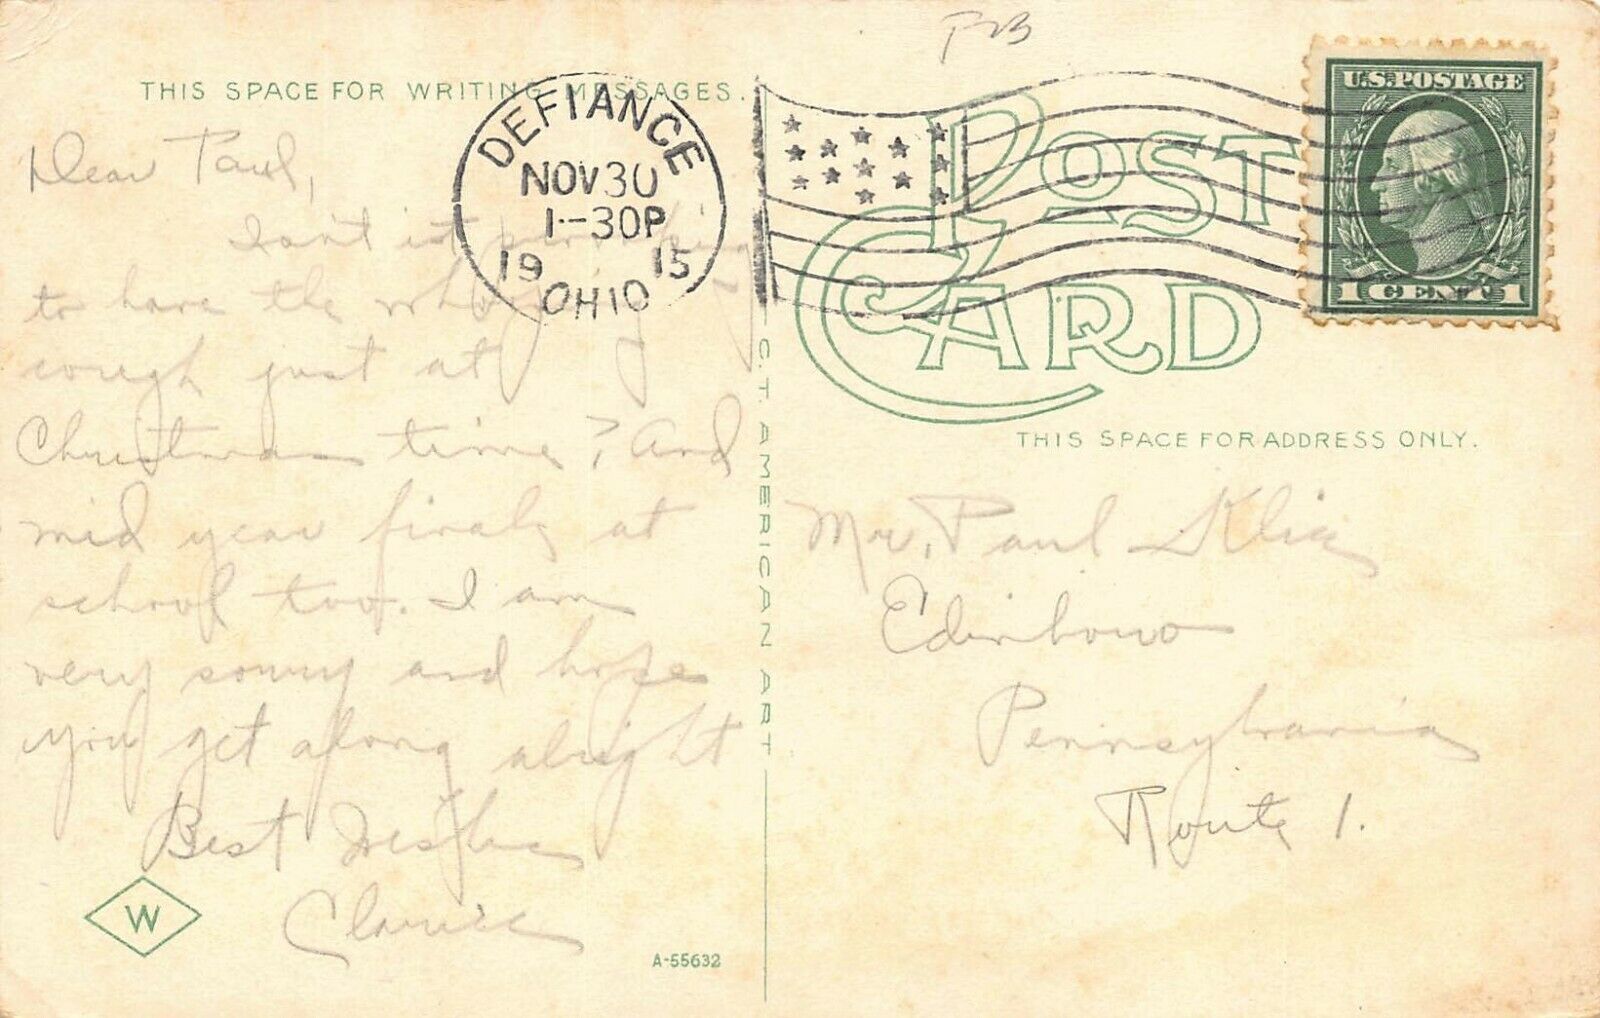 THIS SPACE FOR WRITING MESSAGES.
DEFIANCE
NOV 30
1-30P
19 15
OHIO
U.S. POSTAGE
1 CENT 1
POST
CARD
THIS SPACE FOR ADDRESS ONLY.
Dear Paul,
Isn't it provoking
to have the whooping
cough just at
Christmas time? And
mid year finals at
school too. I am
very sorry and hope
you get along alright
Best Wishes
Clarice
W
A-55632
C.T. AMERICAN ART
Mr. Paul
Edinboro
Pennsylvania
Route 1.